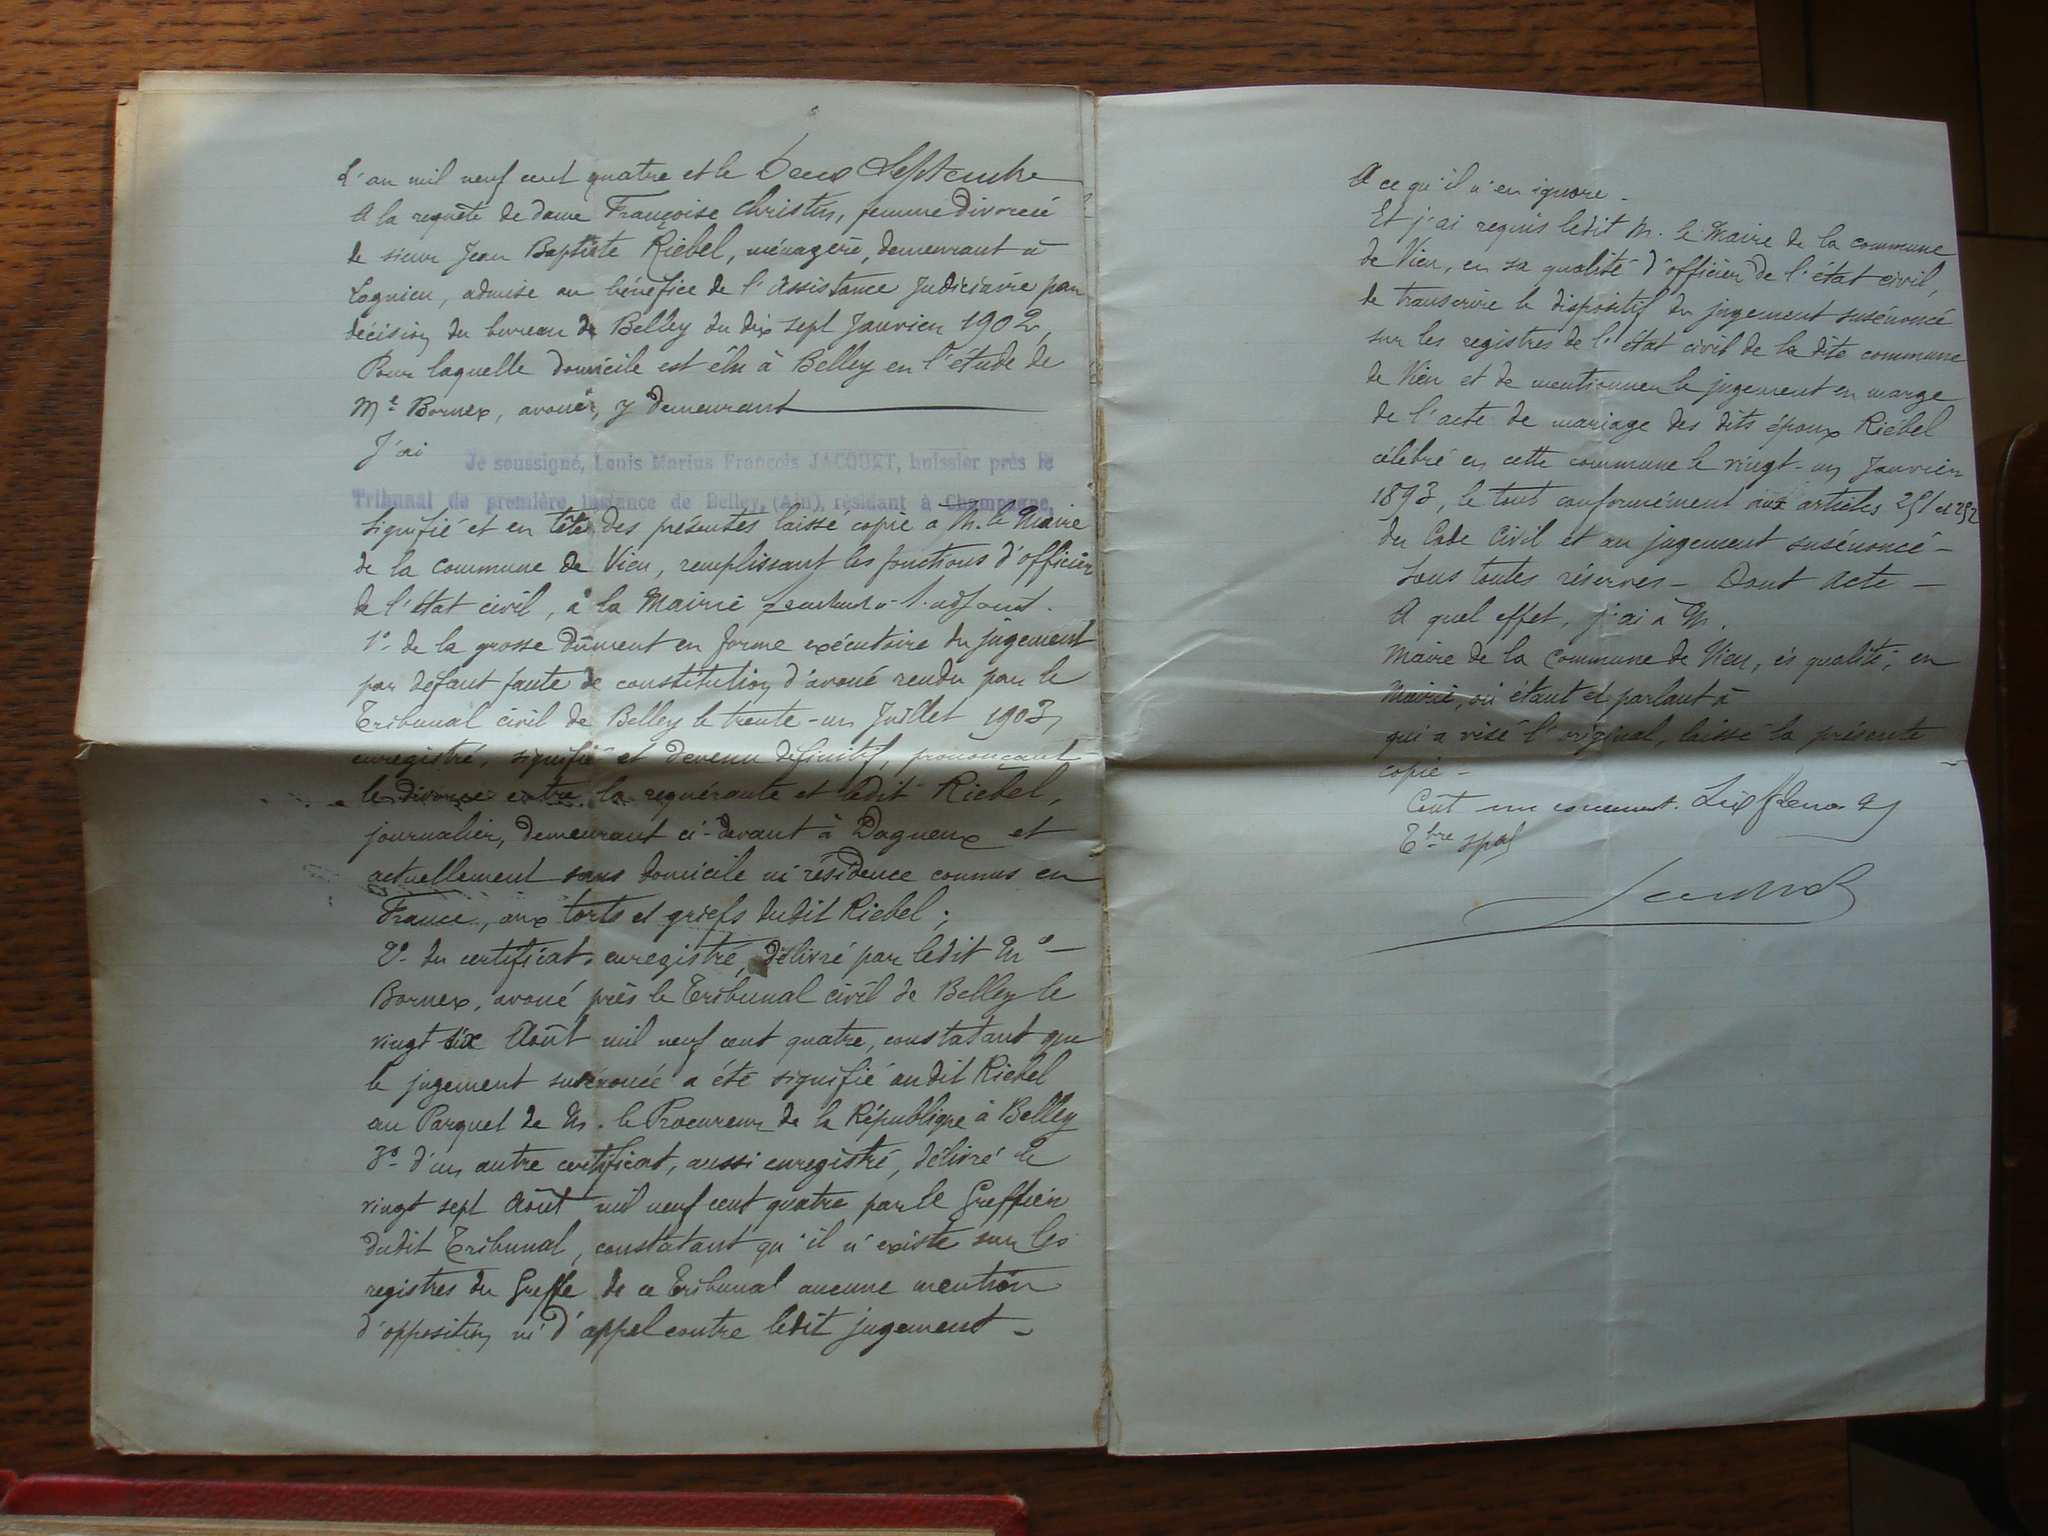 L'an mil neuf cent quatre et le Deux Septembre
A la requête de dame Françoise Christin, femme divorcée
de sieur Jean Baptiste Riebel, ménagère, demeurant à
Lagnieu, admise au bénéfice de l'Assistance Judiciaire par
décision du bureau de Belley du dix sept Janvier 1902,
Pour laquelle domicile est élu à Belley en l'étude de
Me Bornex, avoué, y demeurant
J'ai Je soussigné, Louis Marius François JACQUET, huissier près le
Tribunal de première instance de Belley, (Ain), résidant à Champagne,
signifié et en tête des présentes laissé copie à M. le Maire
de la commune de Vieu, remplissant les fonctions d'officier
de l'état civil, à la Mairie l'adjoint.
1°- de la grosse dûment en forme exécutoire du jugement
par défaut faute de constitution d'avoué rendu par le
Tribunal civil de Belley le trente-un Juillet 1903,
enregistré, signifié et devenu définitif, prononçant
le divorce entre la requérante et ledit Riebel,
journalier, demeurant ci-devant à Dagneux et
actuellement sans domicile ni résidence connus en
France, aux torts et griefs dudit Riebel;
2°- du certificat enregistré, délivré par ledit Me
Bornex, avoué près le Tribunal civil de Belley le
vingt six Août mil neuf cent quatre, constatant que
le jugement susénoncé a été signifié audit Riebel
au Parquet de M. le Procureur de la République à Belley
3°- d'un autre certificat, aussi enregistré, délivré le
vingt sept Août mil neuf cent quatre par le Greffier
dudit Tribunal, constatant qu'il n'existe sur les
registres du Greffe de ce Tribunal aucune mention
d'opposition ni d'appel contre ledit jugement -
A ce qu'il n'en ignore -
Et j'ai requis ledit M. le Maire de la commune
de Vieu, en sa qualité d'officier de l'état civil,
de transcrire le dispositif du jugement susénoncé
sur les registres de l'état civil de la dite commune
de Vieu et de mentionner le jugement en marge
de l'acte de mariage des dits époux Riebel
célébré en cette commune le vingt-un Janvier
1893, le tout conformément aux articles 251 et 252
du Code Civil et au jugement susénoncé -
Sous toutes réserves - Dont Acte -
A quel effet, j'ai à M.
Maire de la commune de Vieu, ès qualité, en
Mairie, où étant et parlant à
qui a visé l'original, laissé la présente
copie -
Coût